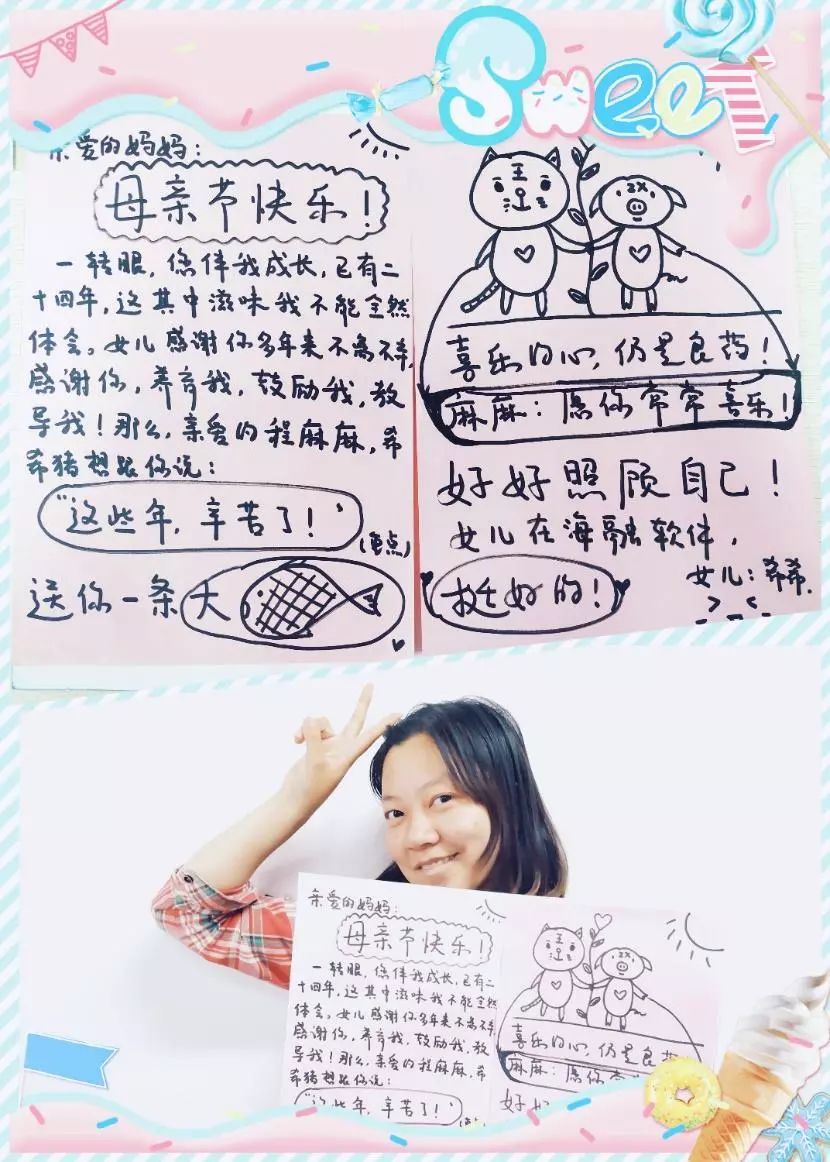 SweeT
亲爱的妈妈：
母亲节快乐！
一转眼，您伴我成长，已有二
十四年，这其中滋味我不能全然
体会。女儿感谢你多年来不离不弃，
感谢你，养育我，鼓励我，教
导我！那么，亲爱的程麻麻，希
希猪想跟你说：
“这些年，辛苦了！”
(重点)
送你一条大
王
喜乐的心，仍是良药！
麻麻：愿你常常喜乐！
好好照顾自己！
女儿在海融软件，
挺好的！
女儿：希希.
亲爱的妈妈：
母亲节快乐！
一转眼，您伴我成长，已有二
十四年，这其中滋味我不能全然
体会。女儿感谢你多年来不离不弃
感谢你，养育我，鼓励我，教
导我！那么，亲爱的程麻麻，希
希猪想跟你说：
“这些年，辛苦了！”
王
喜乐的心，仍是良药
麻麻：愿你
好